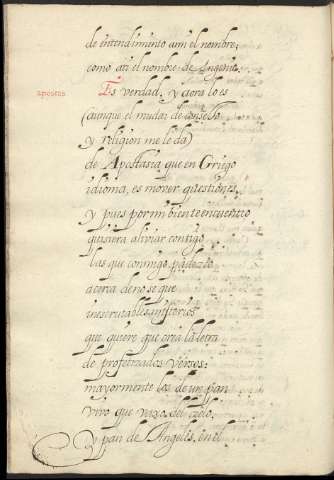 de entendimiento a mi el nombre,
como a ti el nombre de Ingenio.
apostas Es verdad, y aora lo es
(aunque el mudar de consejo
y religion me le da)
de Apostasia, que en Griego
idioma, es mover questiones,
y pues por mi bien te encuentro
quisiera aliviar contigo
las que conmigo padezco
acerca de no se que
inescrutables misterios
que quiere que cria la letra
de profetizados versos:
mayormente los de un pan
vivo que vaxo del cielo,
y pan de Angeles, en el